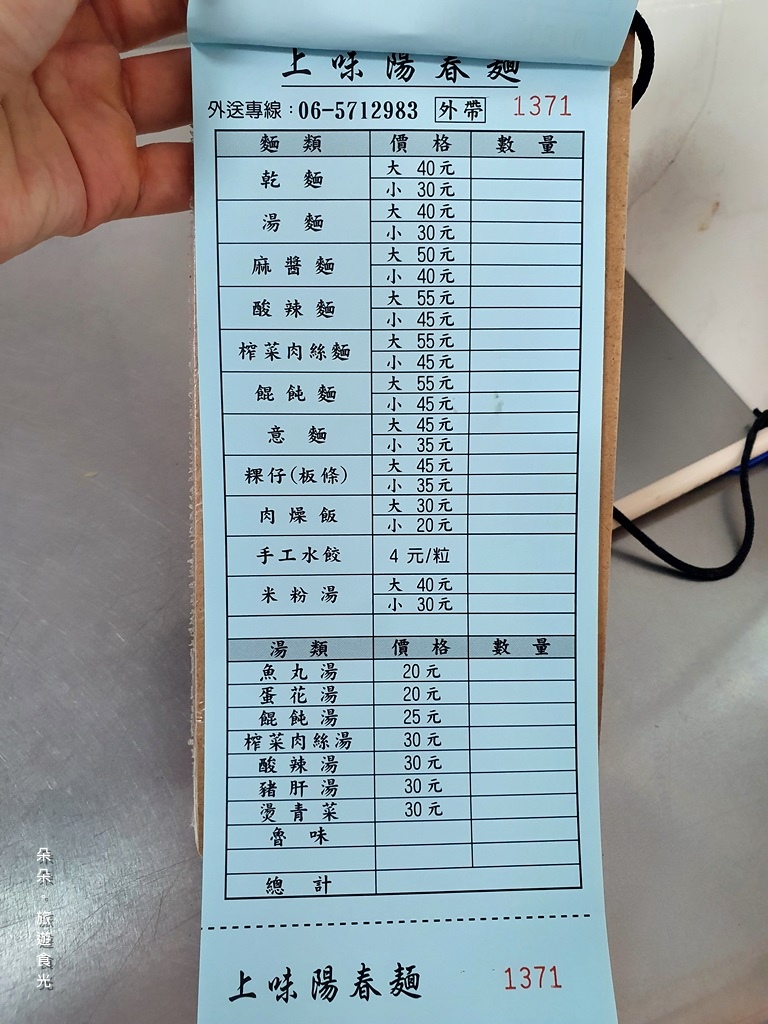 上味陽春麵
外送專線：06-5712983 外帶 1371
麵類 價格 數量
乾麵 大 40元
小 30元
湯麵 大 40元
小 30元
麻醬麵 大 50元
小 40元
酸辣麵 大 55元
小 45元
榨菜肉絲麵 大 55元
小 45元
餛飩麵 大 55元
小 45元
意麵 大 45元
小 35元
粿仔(板條) 大 45元
小 35元
肉燥飯 大 30元
小 20元
手工水餃 4 元/粒
米粉湯 大 40元
小 30元
湯類 價格 數量
魚丸湯 20元
蛋花湯 20元
餛飩湯 25元
榨菜肉絲湯 30元
酸辣湯 30元
豬肝湯 30元
燙青菜 30元
魯味
總計
上味陽春麵 1371
朵朵。旅遊食光